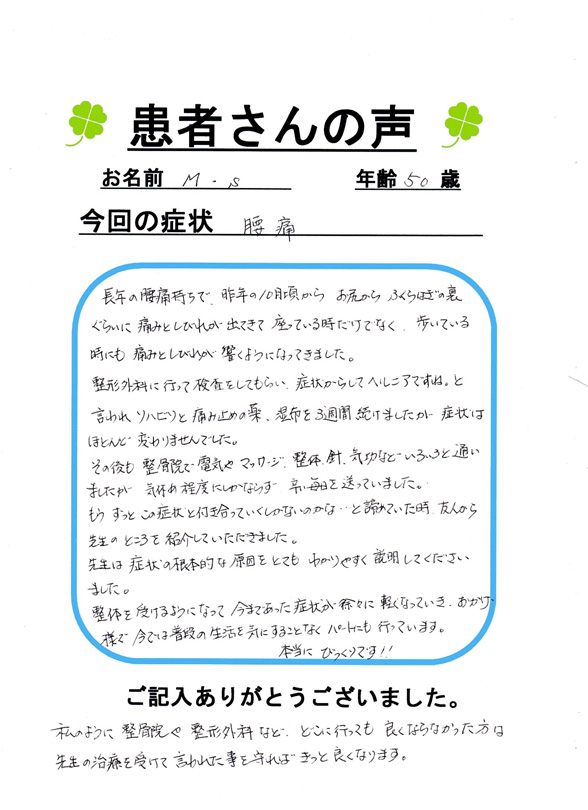 患者さんの声
お名前 M・S
年齢 50 歳
今回の症状 腰痛
長年の腰痛持ちで、昨年の10月頃から お尻から ふくらはぎの裏
ぐらいに 痛みとしびれが出てきて 座っている時だけでなく、歩いている
時にも 痛みとしびれが 響くようになってきました。
整形外科に行って検査をしてもらい、症状からしてヘルニアですね。と
言われ リハビリと痛み止めの薬、湿布を3週間続けましたが 症状は
ほとんど 変わりませんでした。
その後も 整骨院で電気や マッサージ、整体、針、気功などいろいろと通い
ましたが 気休め程度にしかならず 辛い毎日を送っていました。
もう ずっと この症状と付き合っていくしかないのかな…と諦めていた時、友人から
先生の ところを 紹介していただきました。
先生は 症状の根本的な原因をとても わかりやすく説明してください
ました。
整体を受けるようになって 今まであった症状が徐々に軽くなっていき、おかげ
様で今では普段の生活を気にすることなく パートにも行っています。
本当に びっくりです!!
ご記入ありがとうございました。
私のように 整骨院や 整形外科など、どこに行っても 良くならなかった方は
先生の治療を受けて 言われた事を守れば きっと良くなります。